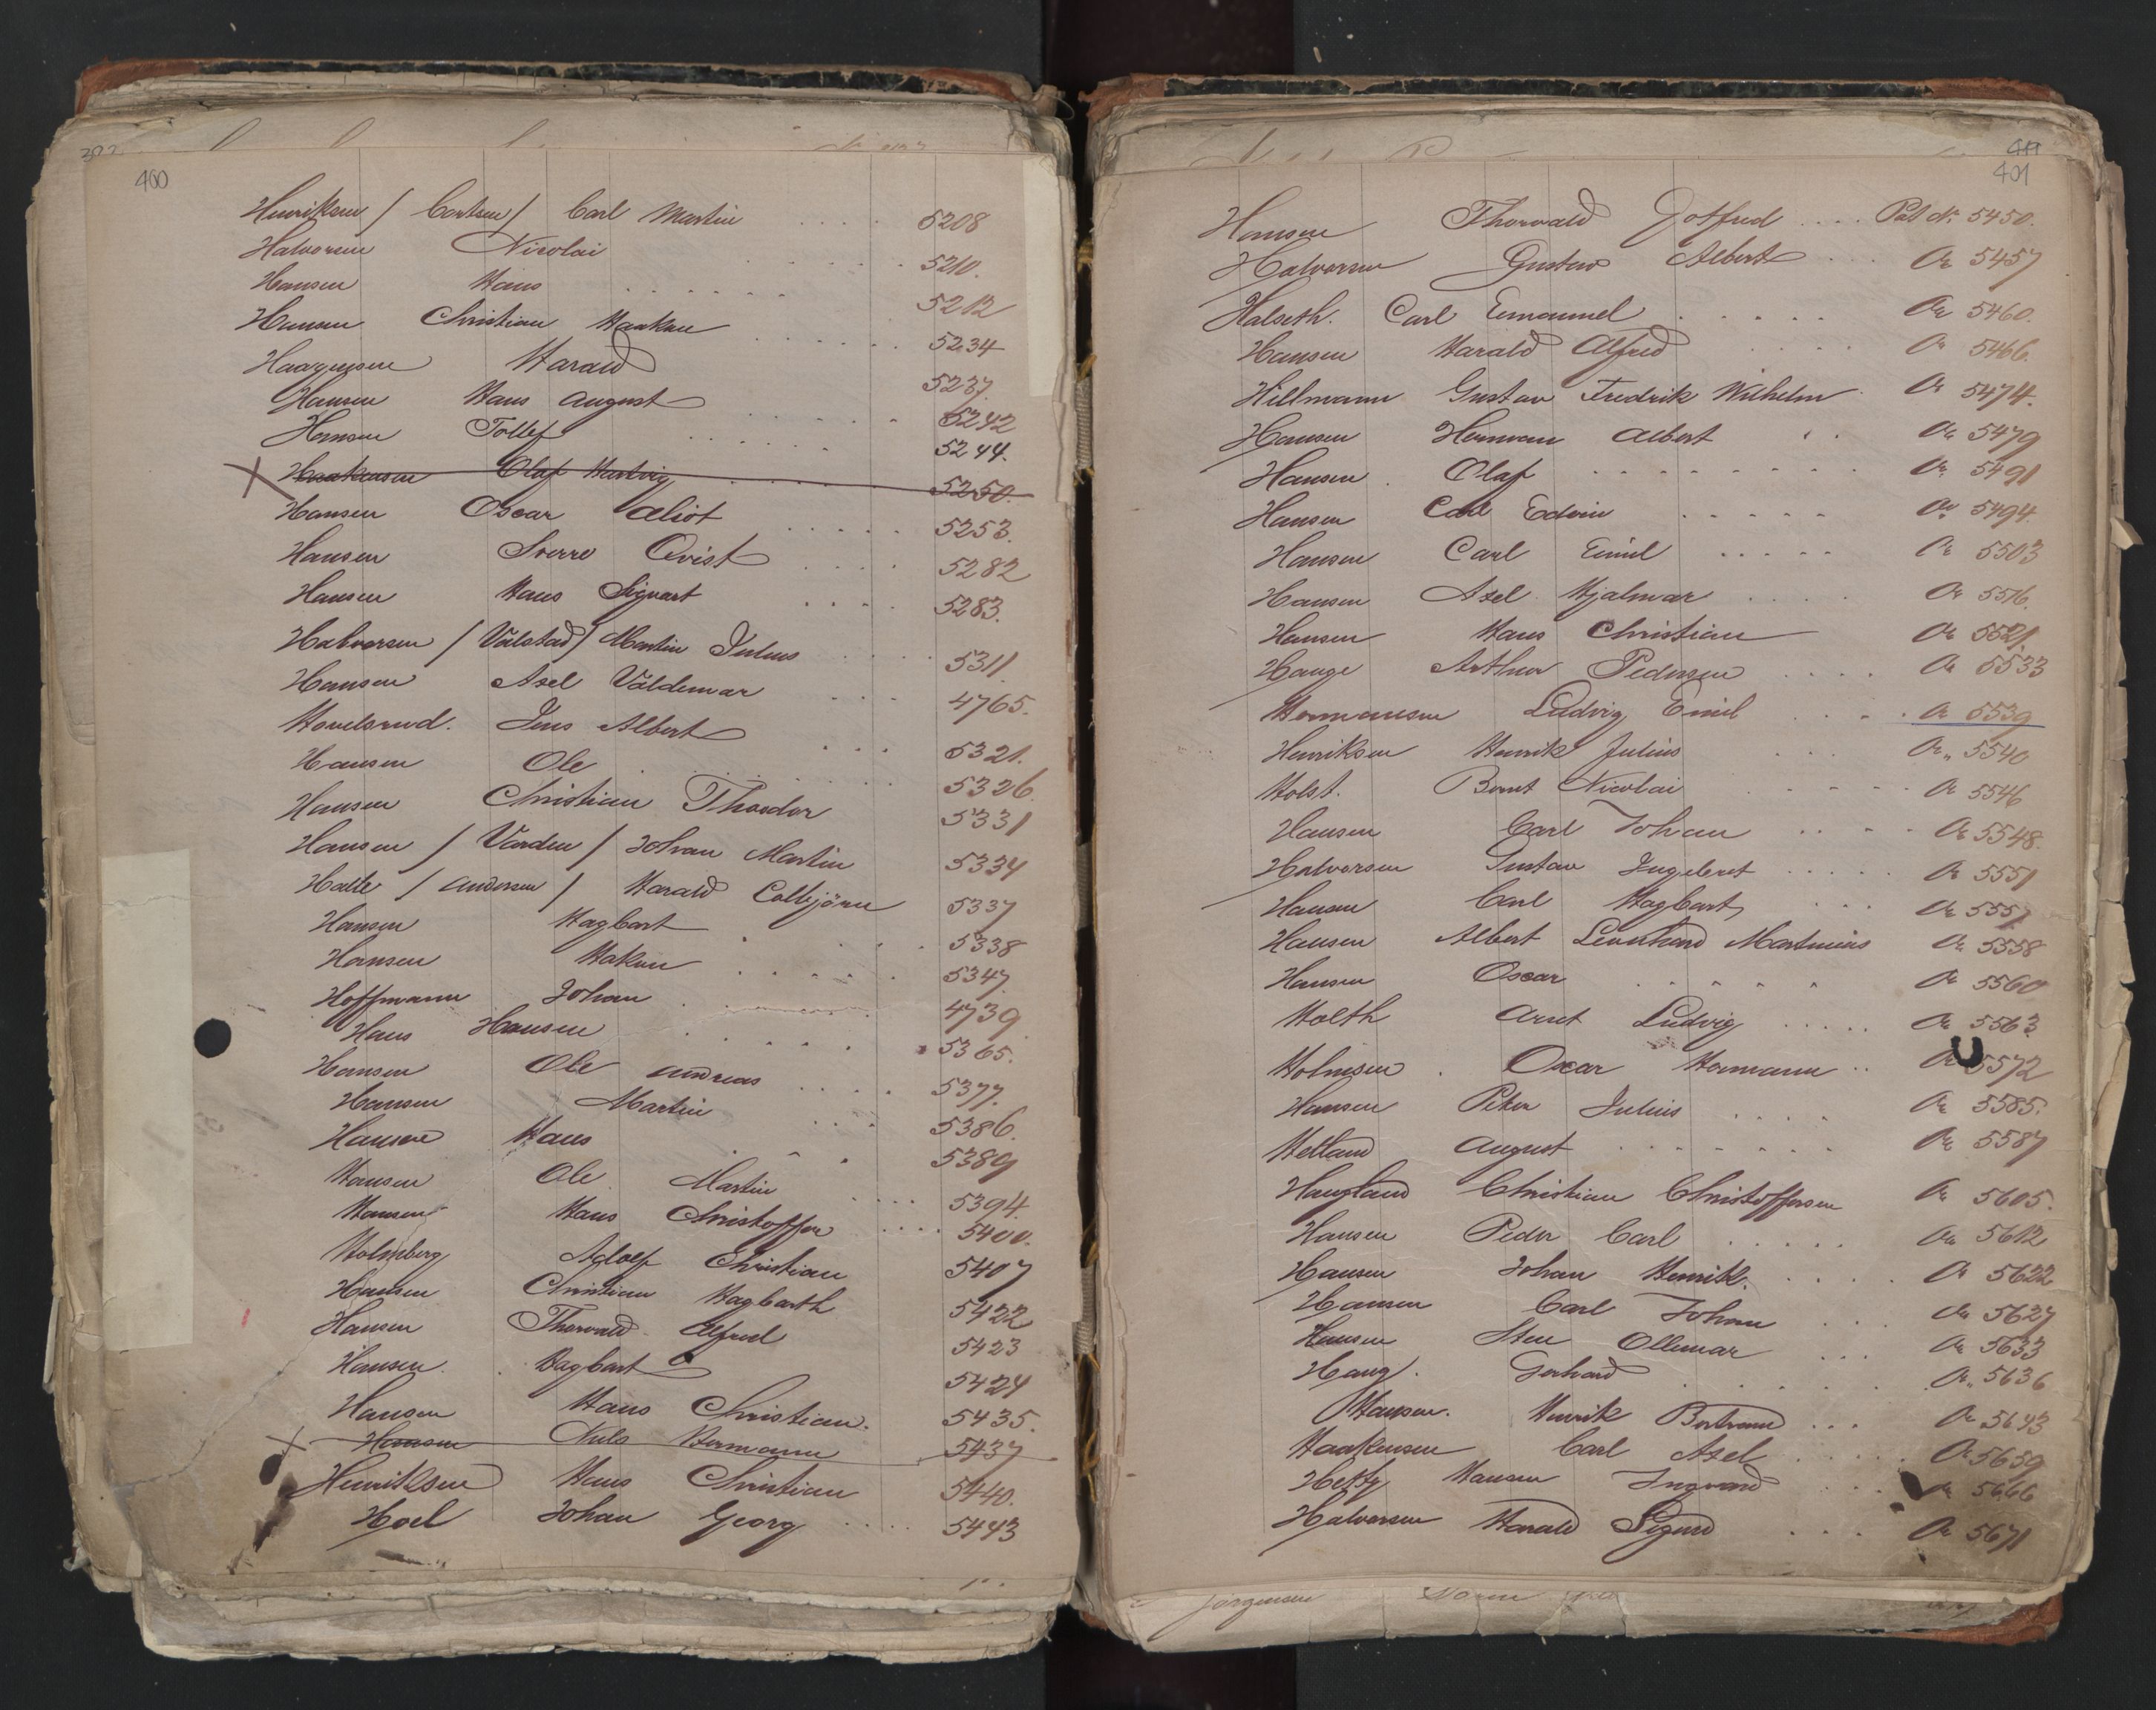 400
Henriksen / Carlsen / Carl Martin .... 5208
Halvorsen Nicolai ..... 5210.
Hansen Hans ...... 5212
Hansen Christian Haaken ..... 5234
Haagensen Harald 5237.
Hansen Hans August .... 5242
Hansen Tollef .... 5244.
X Haakensen Olaf Hartvig .... 5250.
Hansen Oscar Eliot .... 5253.
Hansen Sverre Qvist .... 5282
Hansen Hans Sigvart .... 5283.
Halvorsen / Valstad / Martin Julius .... 5311.
Hansen Axel Valdemar ... 4765.
Hovelsrud. Jens Albert ... 5321.
Hansen Ole ...... 5326.
Hansen Christian Theodor 5331
Hansen / Varden / Johan Martin 5334
Halle / Andersen / Harald Colbjörn 5337
Hansen Hagbart ... 5338
Hansen Hakon .... 5347.
Hoffmann Johan . 4739
Hans Hansen ..... 5365.
Hansen Ole Andreas .... 5377.
Hansen Martin ... 5386.
Hansen Hans ... 5389
Hansen Ole Martin .... 5394.
Hansen Hans Christoffer .... 5400.
Holmberg Adolf Christian 5407
Hansen Christian Hagbarth 5422
Hansen Thorvald Alfred 5423
Hansen. . Hagbart 5424
Hansen Hans Christian. 5435.
X Hansen Nils Hermann 5437
Henriksen Hans Christian 5440.
Hoel Johan Georg .... 5443
401
Hansen Thorvald Gotfred .... Pat No. 5450.
Halvorsen Gustav Albert ... " 5457
Halseth. Carl Emanuel ..... " 5460.
Hansen Harald Alfred .... " 5466.
Hillmann Gustav Fredrik Wilhelm. " 5474.
Hansen Herman Albert .. " 5479
Hansen . Olaf ........ " 5491
Hansen Carl Edvin ..... " 5494.
Hansen Carl Emil ..... " 5503
Hansen Axel Hjalmar .... " 5516.
Hansen Hans Christian " 5521.
Hauge Arthur Pedersen .... " 5533
Hermansen Ludvig Emil .... " 5539
Henriksen Henrik Julius ... " 5540
Holst. Bernt Nicolai ..... " 5546
Hansen Carl Johan .... " 5548.
Halvorsen Gustav Ingebret ..... " 5551
Hansen Carl Hagbart ... "
Hansen Albert Leonhard Martinius " 5558
Hansen Oscar ..... " 5560
Holth Arnt Ludvig ..... " 5563
Holmsen . Oscar Hermann .. " 5572
Hansen Peter Julius .... " 5585.
Helland August ....... " 5587
Haugland Christian Christoffersen " 5605.
Hansen Peder Carl ..... " 5612
Hansen Johan Henrik. .... " 5622
Hansen Carl Johan ... " 5627
Hansen Sten Ollemar ... " 5633
Haug. Gerhard ..... " 5636
Hansen. Henrik Bertrand ... " 5643
Haakensen Carl Axel ..... " 5659
Hansen Ingvard ... " 5666
Halvorsen Harald Sigurd .... " 5671
Jörgensen